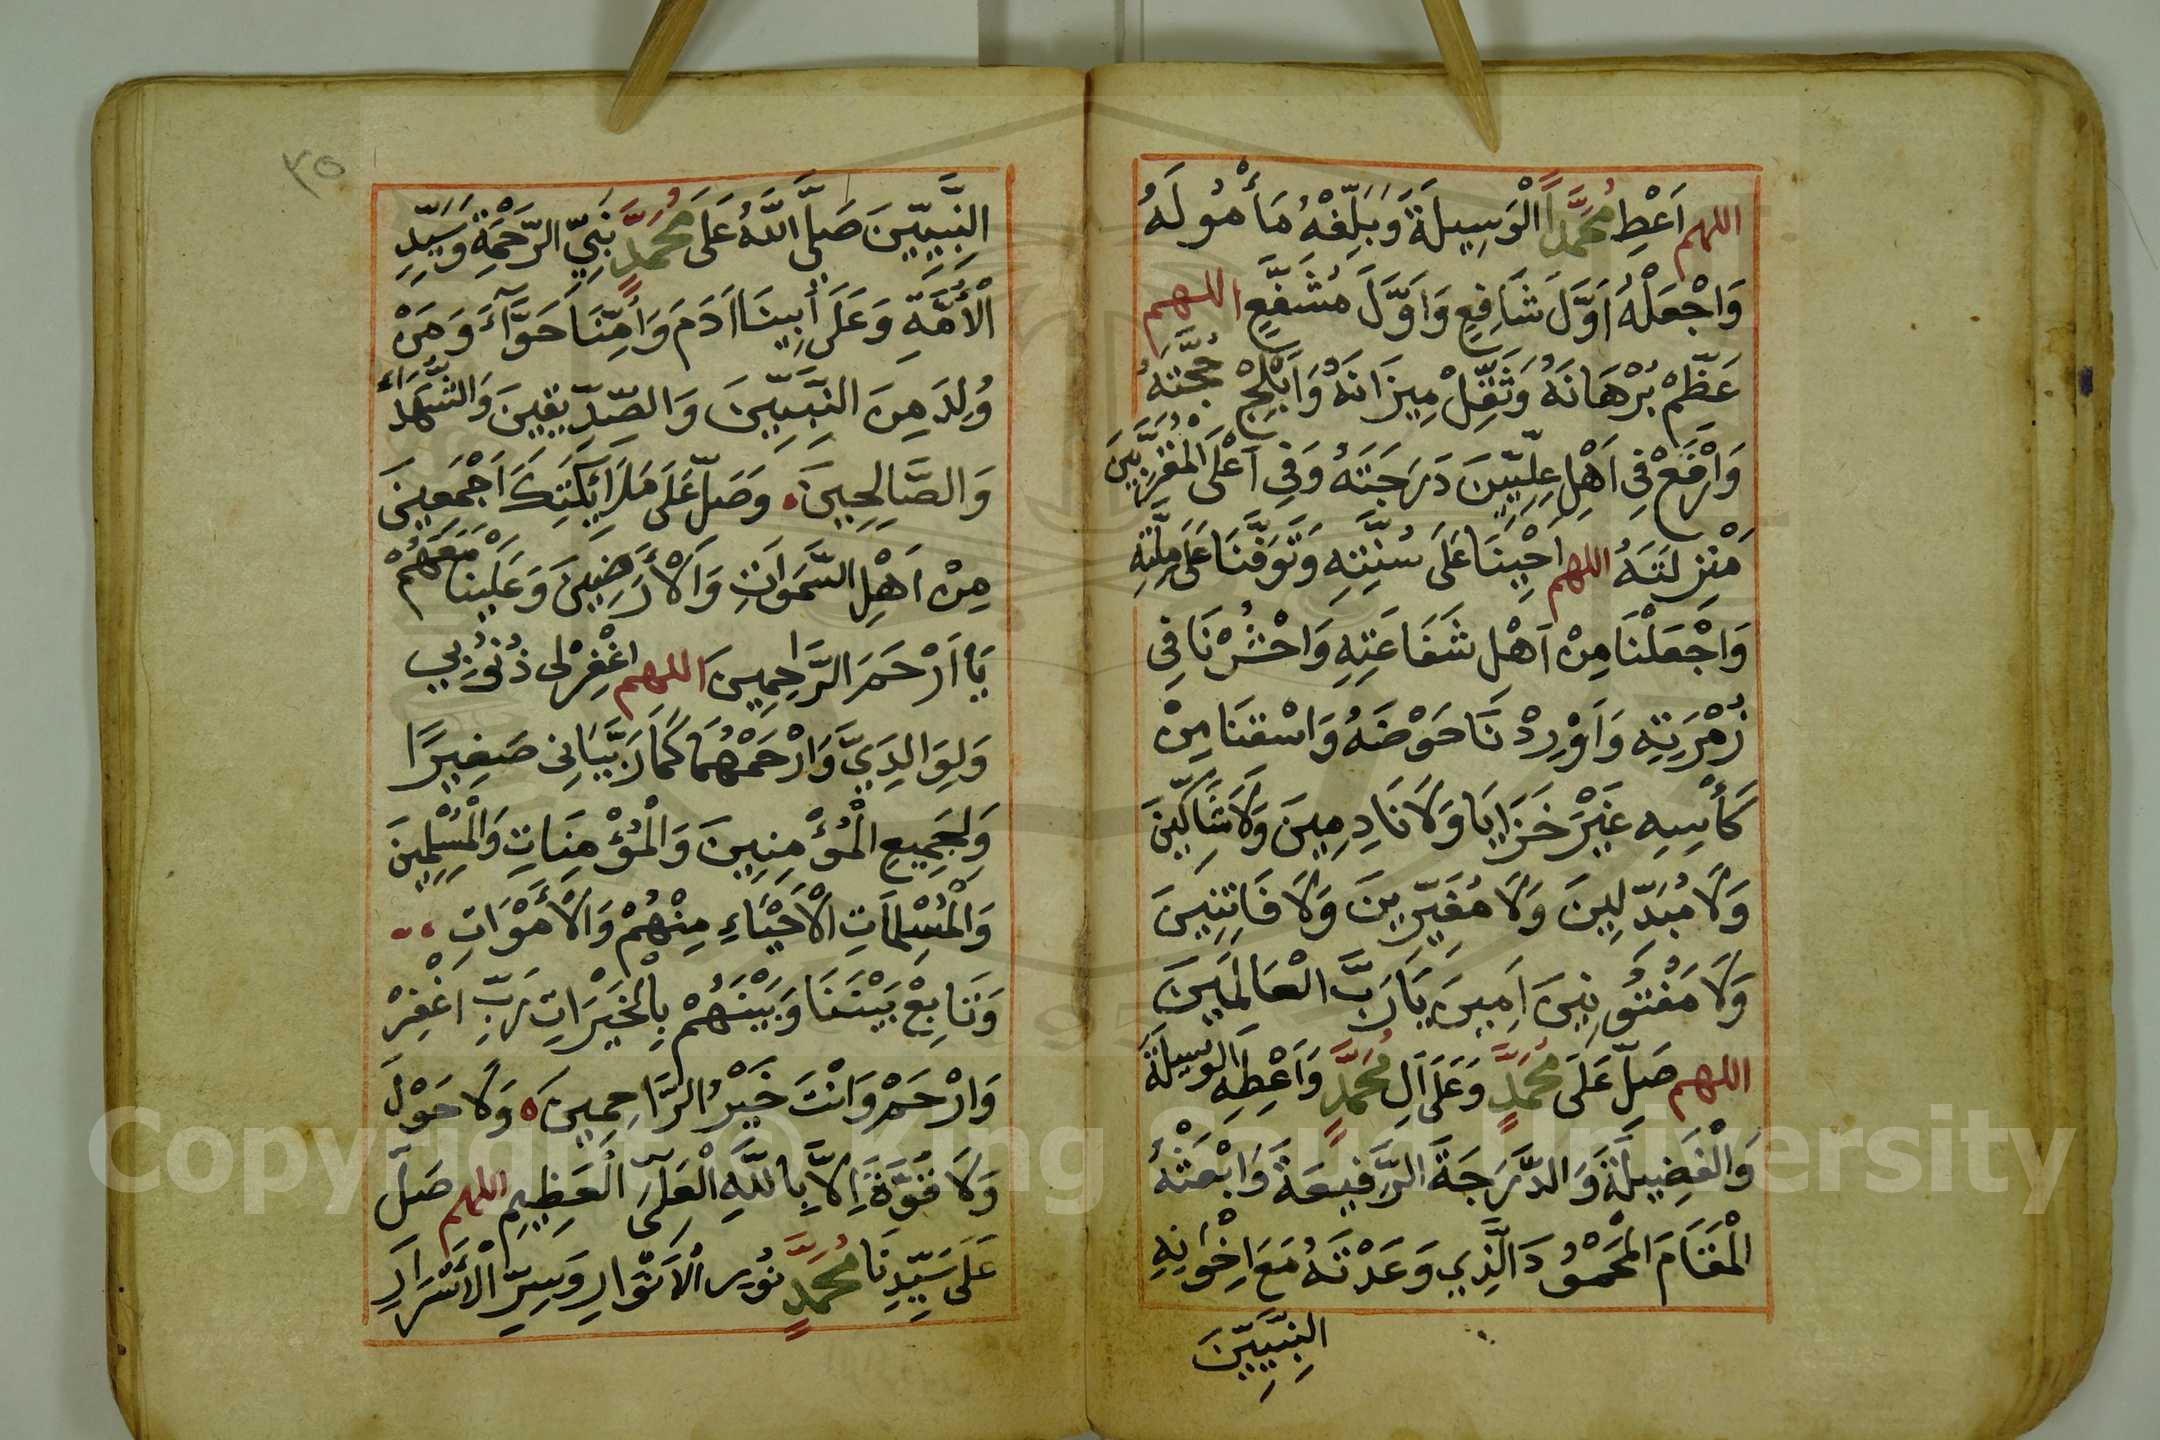 اللهم اَعْطِ مُحَمَّداً الْوَسِيلَةَ وَبَلِّغْهُ مَأْمُولَهُ
وَاجْعَلْهُ اَوَّلَ شَافِعٍ وَاَوَّلَ مُشَفَّعٍ اللهم
عَظِّمْ بُرْهَانَهُ وَثَقِّلْ مِيزَانَهُ وَاَبْلِجْ حُجَّتَهُ
وَارْفَعْ فِي اَهْلِ عِلِّيِّينَ دَرَجَتَهُ وَفِي اَعْلَى الْمُقَرَّبِينَ
مَنْزِلَتَهُ اللهم اَحْيِنَا عَلَى سُنَّتِهِ وَتَوَفَّنَا عَلَى مِلَّتِهِ
وَاجْعَلْنَا مِنْ اَهْلِ شَفَاعَتِهِ وَاحْشُرْنَا فِي
زُمْرَتِهِ وَاَوْرِدْنَا حَوْضَهُ وَاسْقِنَا مِنْ
كَأْسِهِ غَيْرَ خَزَايَا وَلَا نَادِمِينَ وَلَا شَاكِّينَ
وَلَا مُبَدِّلِينَ وَلَا مُغَيِّرِينَ وَلَا فَاتِنِينَ
وَلَا مَفْتُونِينَ اَمِينَ يَا رَبَّ الْعَالَمِينَ
اللهم صَلِّ عَلَى مُحَمَّدٍ وَعَلَى اَلِ مُحَمَّدٍ وَاَعْطِهِ الْوَسِيلَةَ
وَالْفَضِيلَةَ وَالدَّرَجَةَ الرَّفِيعَةَ وَابْعَثْهُ
الْمَقَامَ الْمَحْمُودَ الَّذِي وَعَدْتَهُ مَعَ اِخْوَانِهِ
النَّبِيِّينَ
٣٥
النَّبِيِّينَ صَلَّى اللَّهُ عَلَى مُحَمَّدٍ نَبِيِّ الرَّحْمَةِ وَسَيِّدِ
الْأُمَّةِ وَعَلَى أَبِينَا اَدَمَ وَأُمِّنَا حَوَّآءَ وَمَنْ
وُلِدَ مِنَ النَّبِيِّينَ وَالصِّدِّيقِينَ وَالشُّهَدَاءِ
وَالصَّالِحِينَ وَصَلِّ عَلَى مَلَائِكَتِكَ اَجْمَعِينَ
مِنْ اَهْلِ السَّمَوَاتِ وَالْأَرَضِينَ وَعَلَيْنَا مَعَهُمْ
يَا اَرْحَمَ الرَّاحِمِينَ اللهم اغْفِرْلِي ذُنُوبِي
وَلِوَالِدَيَّ وَارْحَمْهُمَا كَمَا رَبَّيَانِي صَغِيرًا
وَلِجَمِيعِ الْمُؤْمِنِينَ وَالْمُؤْمِنَاتِ وَالْمُسْلِمِينَ
وَالْمُسْلِمَاتِ الْأَحْيَاءِ مِنْهُمْ وَالْأَمْوَاتِ
وَتَابِعْ بَيْنَنَا وَبَيْنَهُمْ بِالْخَيْرَاتِ رَبِّ اغْفِرْ
وَارْحَمْ وَاَنْتَ خَيْرُ الرَّاحِمِينَ وَلَا حَوْلَ
وَلَا قُوَّةَ اِلَّا بِاللَّهِ الْعَلِيِّ الْعَظِيمِ اللهم صَلِّ
عَلَى سَيِّدِنَا مُحَمَّدٍ نُورِ الْأَنْوَارِ وَسِرِّ الْأَسْرَارِ
Copyright © King Saud University